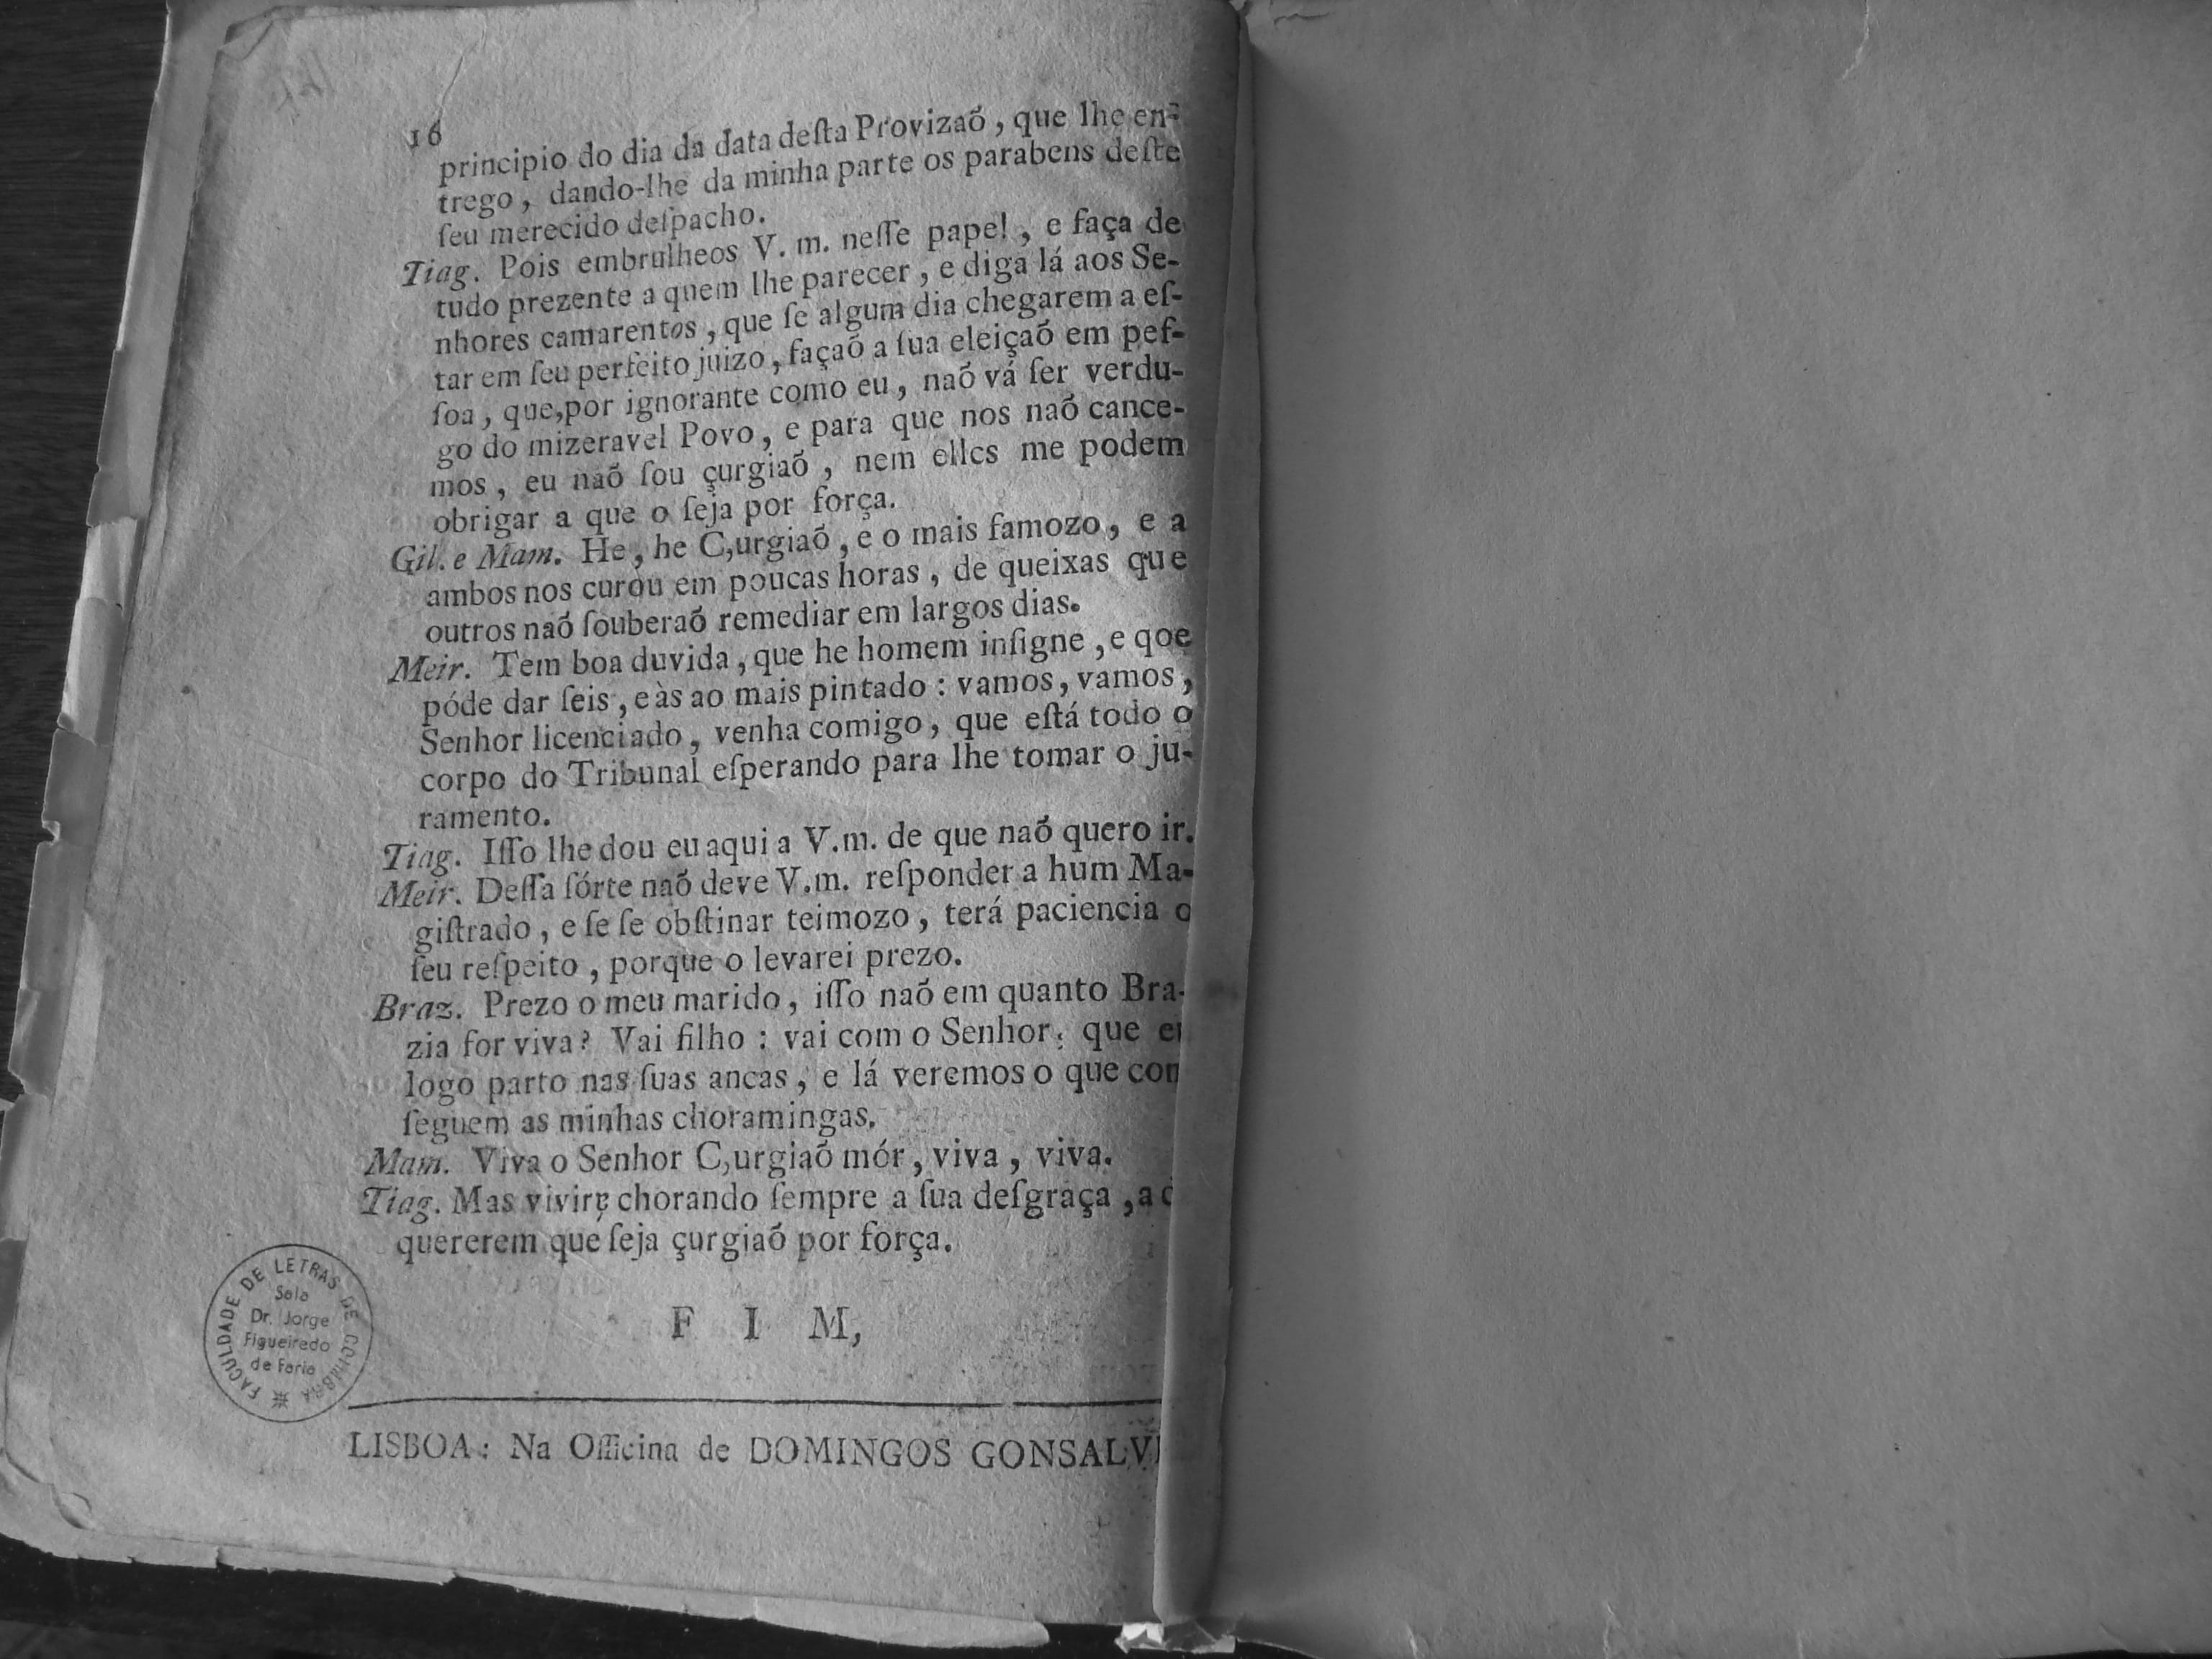 16
principio do dia da data deſta Provizaõ, que lhe en-
trego, dando-lhe da minha parte os parabens deſte
ſeu merecido deſpacho.
Tiag. Pois embrulheos V. m. neſſe papel, e faça de
tudo prezente a quem lhe parecer, e diga lá aos Se-
nhores camarentos, que ſe algum dia chegarem a eſ-
tar em ſeu perfeito juizo, façaõ a ſua eleiçaõ em peſ-
ſoa, que,por ignorante como eu, naõ vá ſer verdu-
go do mizeravel Povo, e para que nos naõ cance-
mos, eu naõ ſou çurgiaõ, nem elles me podem
obrigar a que o ſeja por força.
Gil. e Mam. He, he C,urgiaõ, e o mais famozo, e a
ambos nos curou em poucas horas, de queixas que
outros naõ ſouberaõ remediar em largos dias.
Meir. Tem boa duvida, que he homem inſigne, e qoe
póde dar ſeis, e às ao mais pintado: vamos, vamos,
Senhor licenciado, venha comigo, que eſtá todo o
corpo do Tribunal eſperando para lhe tomar o ju-
ramento.
Tiag. Iſſo lhe dou eu aqui a V.m. de que naõ quero ir.
Meir. Deſſa ſórte naõ deve V.m. reſponder a hum Ma-
giſtrado, e ſe ſe obſtinar teimozo, terá paciencia o
ſeu reſpeito, porque o levarei prezo.
Braz. Prezo o meu marido, iſſo naõ em quanto Bra-
zia for viva? Vai filho: vai com o Senhor; que
logo parto nas ſuas ancas, e lá veremos o que con
ſeguem as minhas choramingas.
Mam. Viva o Senhor C,urgiaõ mór, viva, viva.
Tiag. Mas vivirẹ chorando ſempre a ſua deſgraça,
quererem que ſeja çurgiaõ por força.
F I M,
FACULDADE DE LETRAS DE COIMBRA
Sala
Dr. Jorge
Figueiredo
de Faria
LISBOA: Na Officina de DOMINGOS GONSALV